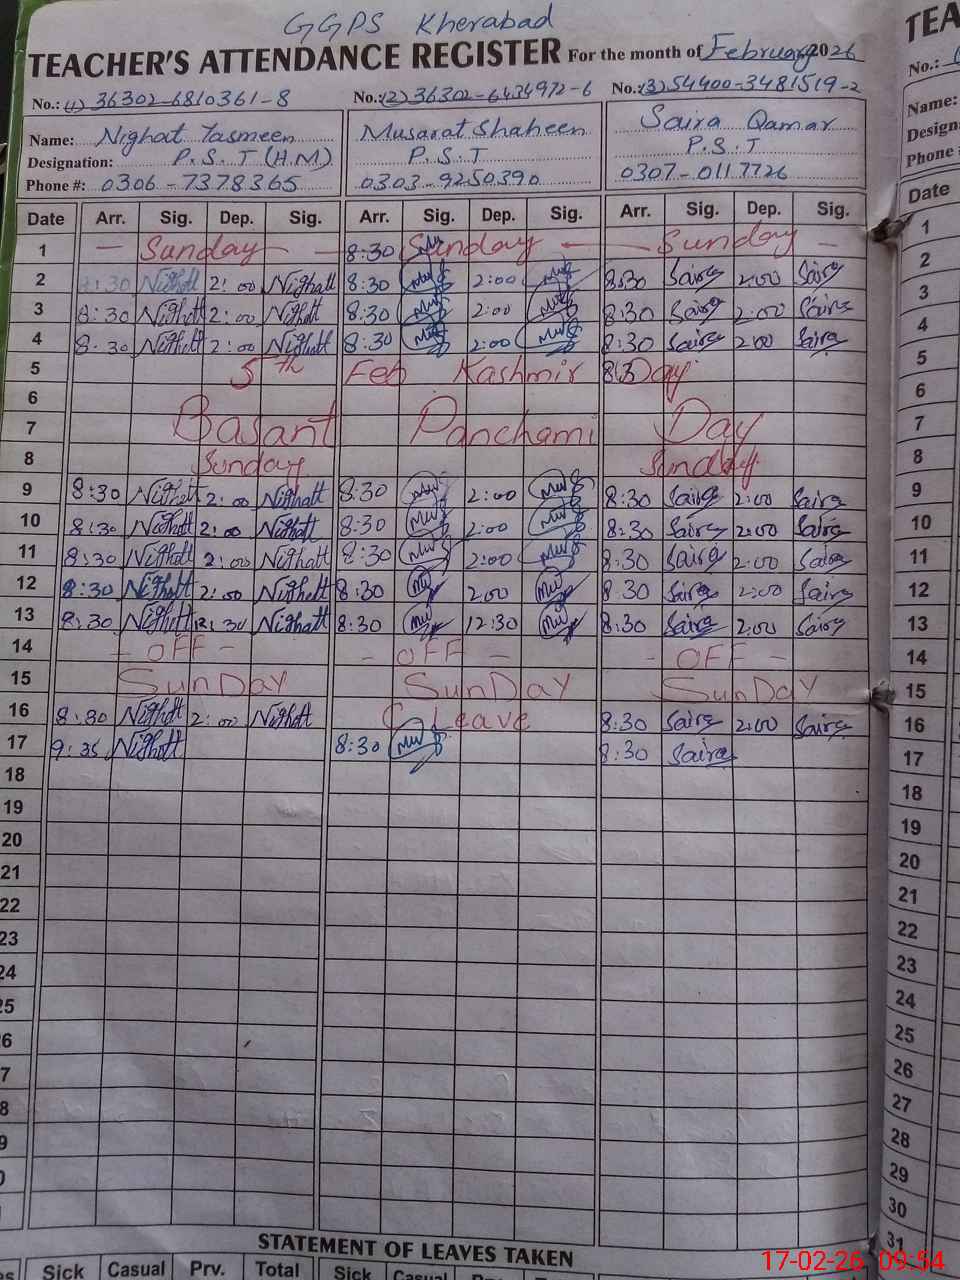 GGPS Kherabad
TEACHER'S ATTENDANCE REGISTER For the month of February 2026
No.: (1) 36302-6810361-8 No.: (2) 36302-6434972-6 No.: (3) 54400-3481519-2
Name: Nighat Yasmeen Musarat Shaheen Saira Qamar
Designation: P.S.T (H.M) P.S.T P.S.T
Phone #: 0306-7378365 0303-9250390 0307-0117726
Date Arr. Sig. Dep. Sig. Arr. Sig. Dep. Sig. Arr. Sig. Dep. Sig.
1 — Sunday — 8:30 Sunday — — Sunday —
2 8:30 Nighatt 2:00 Nighatt 8:30 2:00 8:30 Saira 2:00 Saira
3 8:30 Nighatt 2:00 Nighatt 8:30 2:00 8:30 Saira 2:00 Saira
4 8:30 Nighatt 2:00 Nighatt 8:30 2:00 8:30 Saira 2:00 Saira
5 5th Feb Kashmir Day
6
7 Basant Panchami Day
8 Sunday Sunday
9 8:30 Nighatt 2:00 Nighatt 8:30 2:00 8:30 Saira 2:00 Saira
10 8:30 Nighatt 2:00 Nighatt 8:30 2:00 8:30 Saira 2:00 Saira
11 8:30 Nighatt 2:00 Nighatt 8:30 2:00 8:30 Saira 2:00 Saira
12 8:30 Nighatt 2:00 Nighatt 8:30 2:00 8:30 Saira 2:00 Saira
13 8:30 Nighatt 12:30 Nighatt 8:30 12:30 8:30 Saira 2:00 Saira
14 - OFF - - OFF - - OFF -
15 SunDay SunDay SunDay
16 8:30 Nighatt 2:00 Nighatt C Leave 8:30 Saira 2:00 Saira
17 9:35 Nighatt 8:30 8:30 Saira
18
19
20
21
22
23
24
25
6
7
8
9
0
STATEMENT OF LEAVES TAKEN
Sick Casual Prv. Total Sick Casual
TEA
No.:
Name:
Design
Phone #
Date
1
2
3
4
5
6
7
8
9
10
11
12
13
14
15
16
17
18
19
20
21
22
23
24
25
26
27
28
29
30
31
17-02-26 09:54